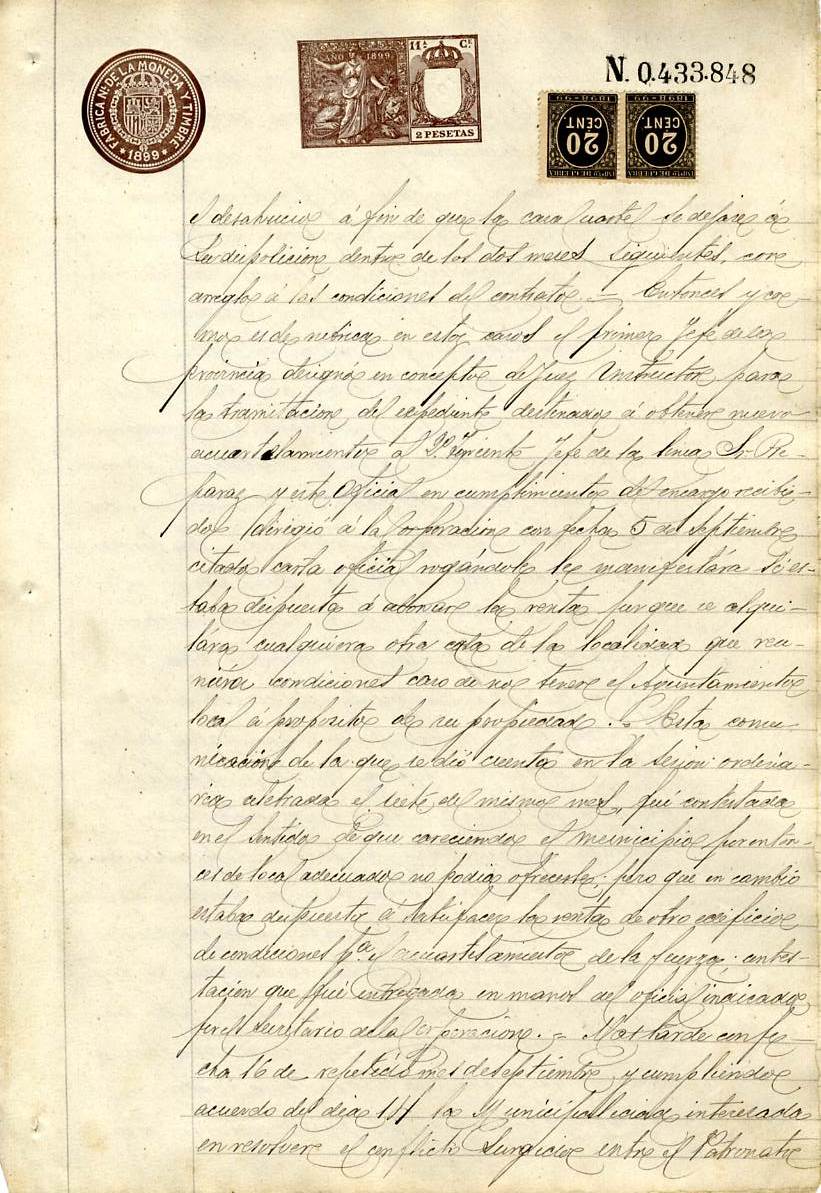 FABRICA Nal DE LA MONEDA Y TIMBRE
* 1899 *
AÑO 1899
11ª Cᴱ
2 PESETAS
N. 0.433.848
1898-99
20
CENT.
IMPTO DE GUERRA
1898-99
20
CENT.
IMPTO DE GUERRA
el desahucio á fin de que la casa Cuartel se dejase á
su disposicion dentro de los dos meses siguientes, con
arreglo á las condiciones del contrato. = Entonces y co-
mo es de rubrica en estos casos el primer Jefe de la
provincia designó en concepto de Juez Instructor para
la tramitacion del expediente destinado á obtener nuevo
acuartelamiento al 2º Teniente Jefe de la linea Sr. Re-
paraz y este Oficial en cumplimiento del encargo recibi-
do dirigió á la Corporacion con fecha 5 de Septiembre
citado carta oficial rogándole le manifestára si es-
taba dispuesta á abonar la renta por que se alqui-
lára cualquiera otra casa de la localidad que reu-
niera condiciones caso de no tener el Ayuntamiento
local á proposito de su propiedad. = Esta comu-
nicacion de la que se dió cuenta en la sesion ordina-
ria celebrada el siete del mismo mes, fué contestada
en el sentido de que careciendo el municipio por enton-
ces de local adecuado no podia ofrecerle; pero que en cambio
estaba dispuesto á satisfacer la renta de otro edificio
de condiciones pª el acuartelamiento de la fuerza: contes-
tacion que fué entregada en manos del oficial indicado
por el Secretario de la Corporacion. = Mas tarde con fe-
cha 16 de repetido mes de Septiembre y cumpliendo
acuerdo del dia 14 la Municipalidad interesada
en resolver el conflicto surgido entre el Patronato